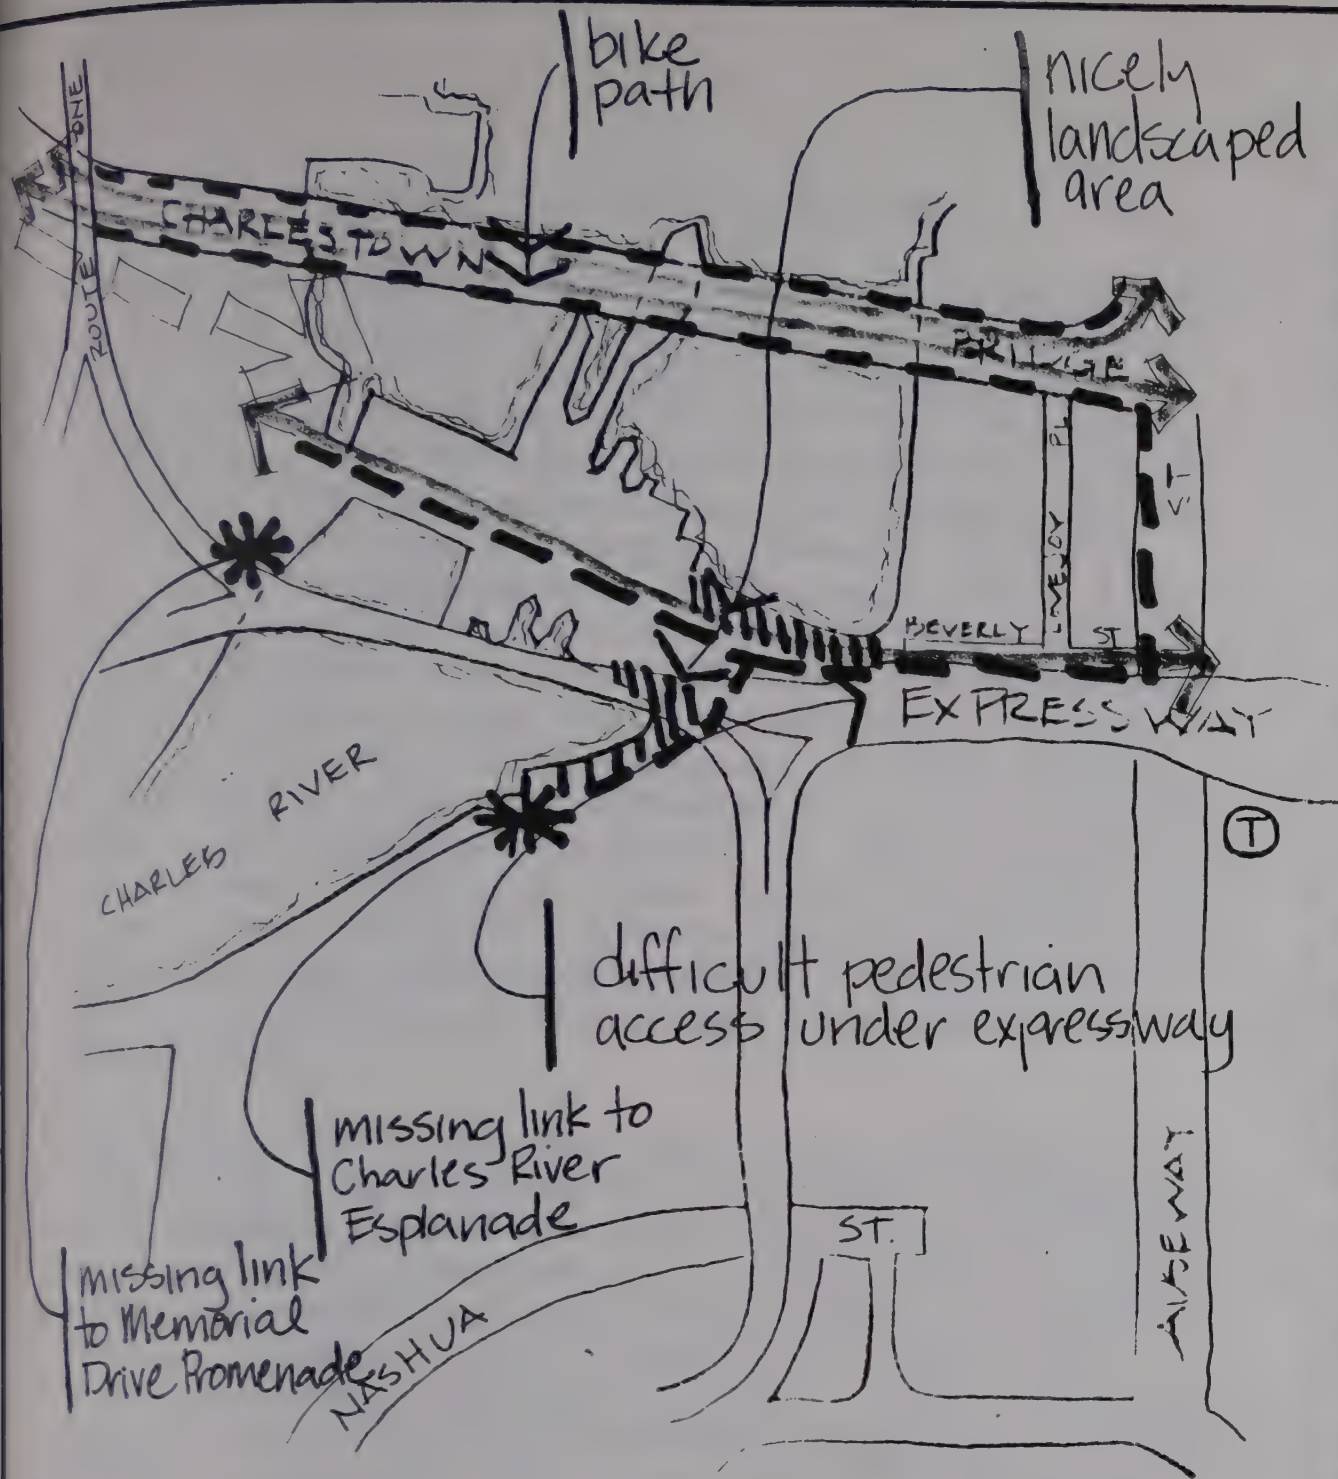 bike
path
nicely
landscaped
area
ONE
ROUTE
CHARLESTOWN
BRIDGE
LOVEJOY PL
ST
BEVERLY ST
EXPRESSWAY
CHARLES RIVER
T
difficult pedestrian
access under expressway
missing link to
Charles River
Esplanade
missing link
to Memorial
Drive Promenade
NASHUA
ST.